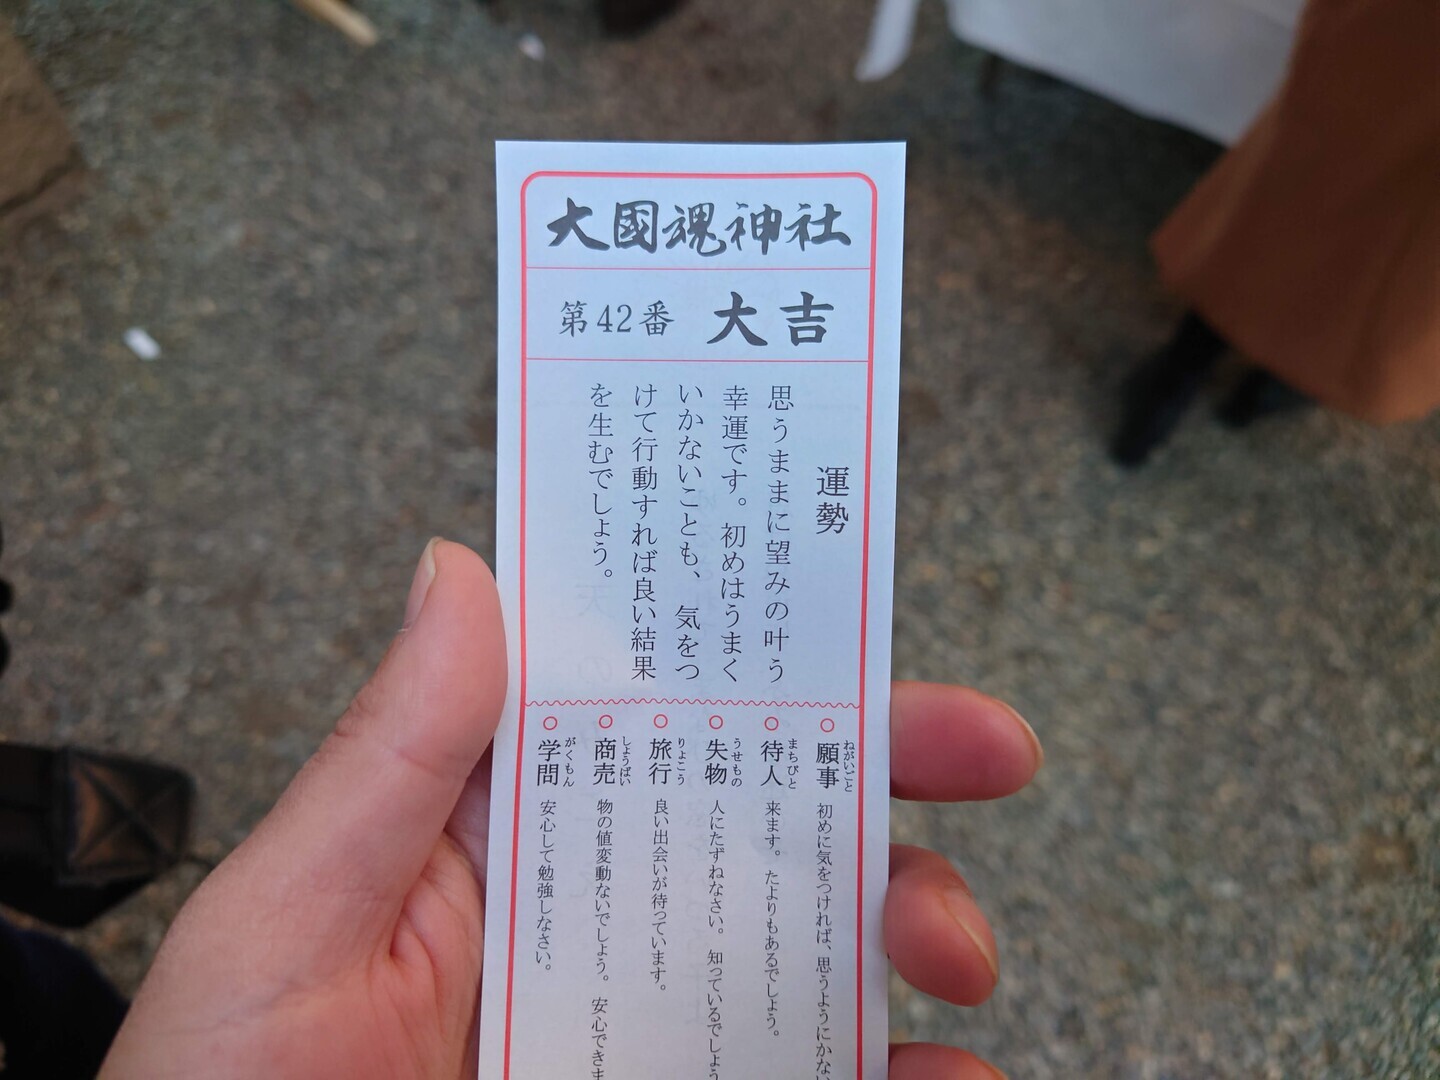 大國魂神社
第42番 大吉
運勢
思うままに望みの叶う
幸運です。初めはうまく
いかないことも、気をつ
けて行動すれば良い結果
を生むでしょう。
願事 ねがいごと 初めに気をつければ、思うようにかない
待人 まちびと 来ます。たよりもあるでしょう。
失物 うせもの 人にたずねなさい。知っているでしょう
旅行 りょこう 良い出会いが待っています。
商売 しょうばい 物の値変動ないでしょう。安心できま
学問 がくもん 安心して勉強しなさい。